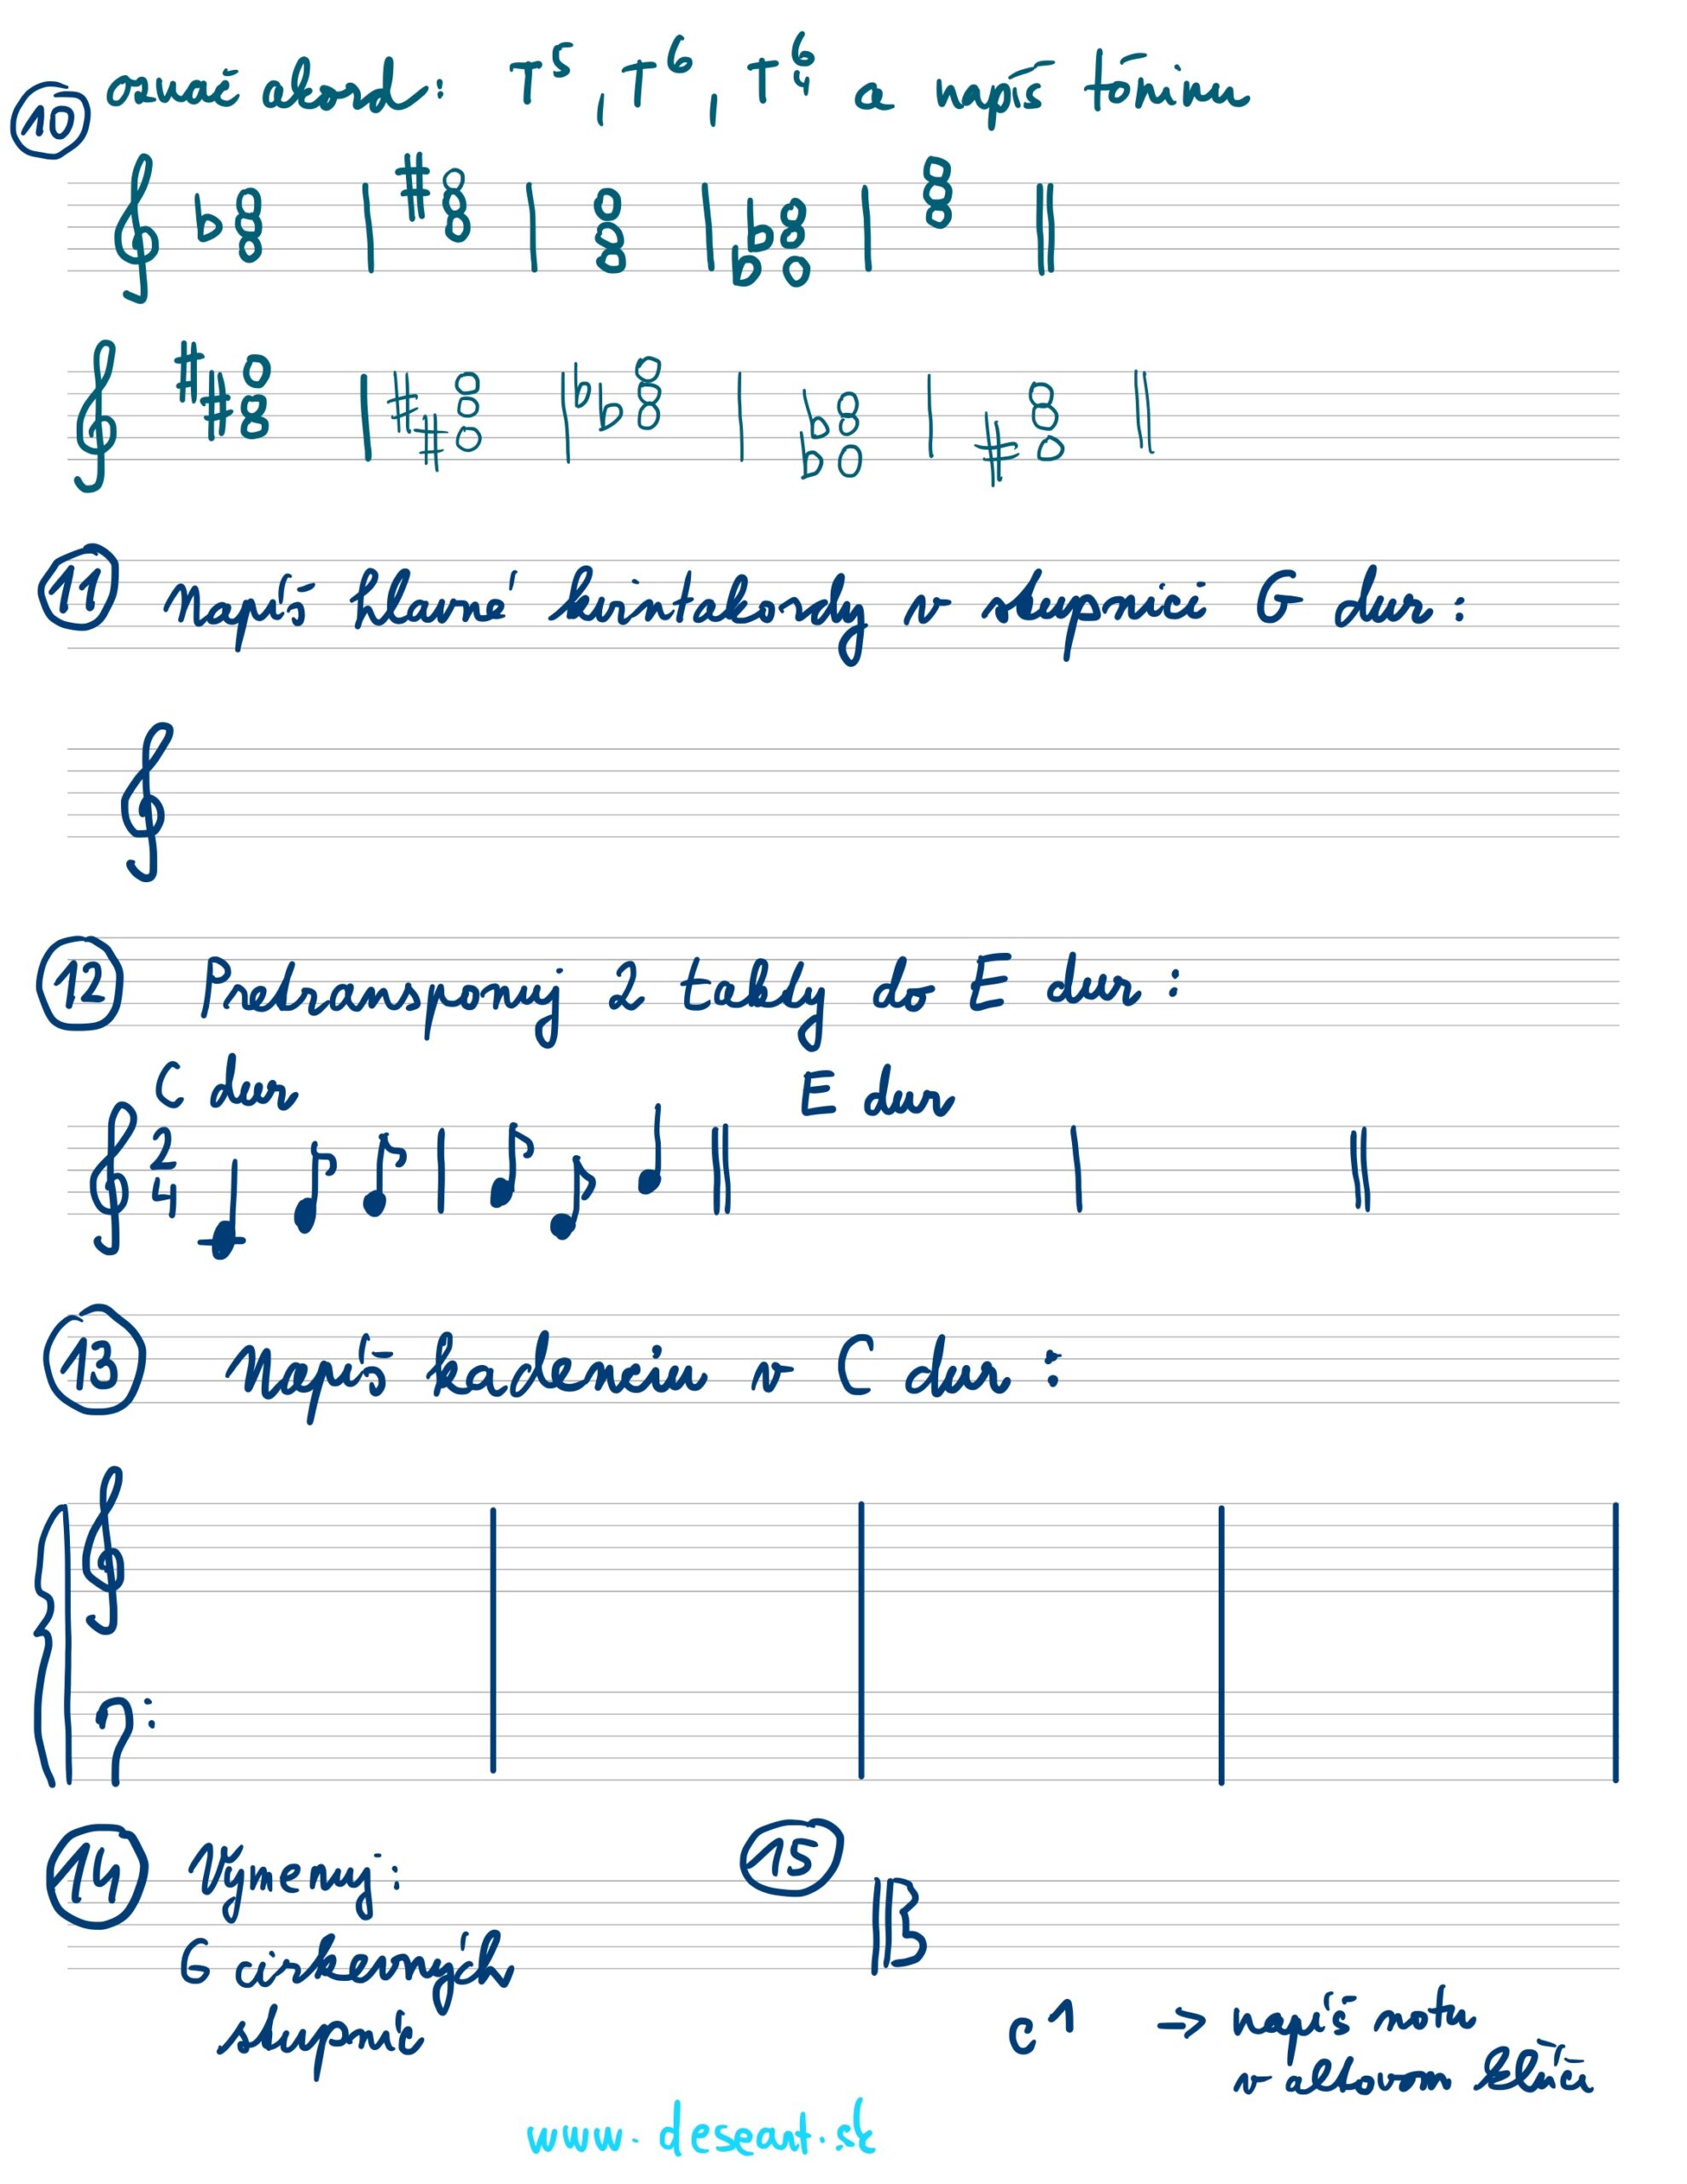 10 označ akord: T5, T6, T64 a napíš tóninu
11 Napíš hlavné kvintakordy v stupnici G dur:
12 Pretransponuj 2 takty do E dur:
C dur E dur
2
4
13 Napíš kadenciu v C dur:
14 Vymenuj:
6 cirkevných
stupníc
15
c1 → napíš notu
v altovom kľúči
www.deseant.sk